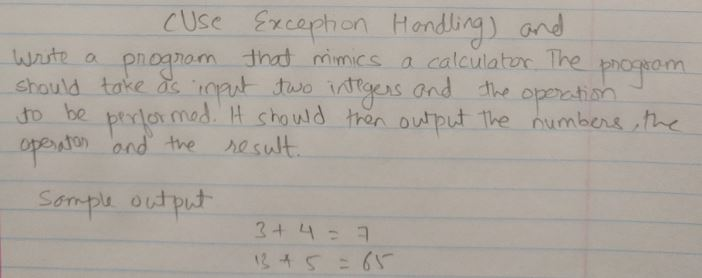 (Use Exception Handling) and
Write a program that mimics a calculator. The program
should take as input two integers and the operation
to be performed. It should then output the numbers, the
operator and the result.
Sample output
3 + 4 = 7
13 * 5 = 65